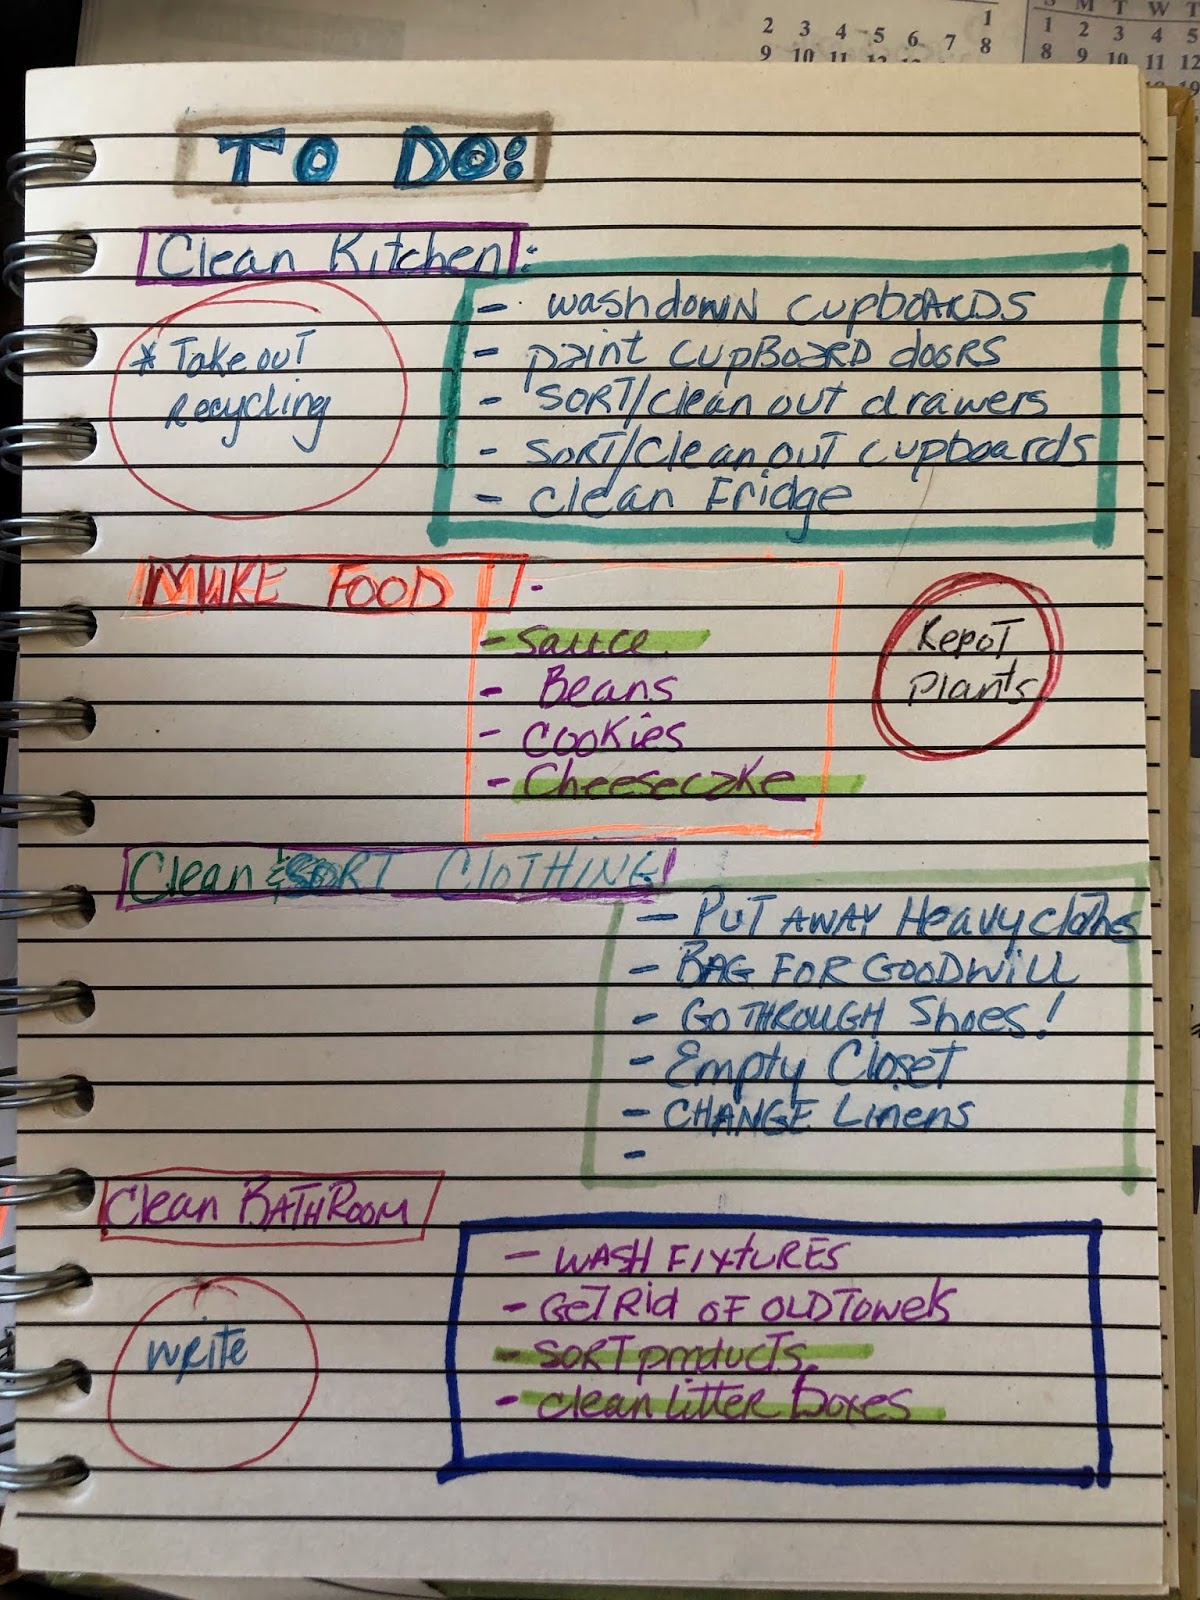 1
2 3 4 5 6 7 8
9 10 11
S M T W T
1 2 3 4 5
8 9 10 11 12
19
TO DO:
Clean Kitchen:
- washdown cupboards
- paint cupBoard doors
* Take out
Recycling
- SORT/clean out drawers
- SORT/Clean out cupboards
- Clean Fridge
MAKE FOOD :
- Sauce
- Beans
- Cookies
- Cheesecake
Repot
Plants
Clean & SORT CLOTHING
- PUT AWAY Heavy clothes
- BAG FOR GOODWILL
- GO THROUGH Shoes!
- Empty Closet
- CHANGE Linens
-
Clean BATHROOM
- WASH FIXTURES
- GeT Rid OF OLD Towels
- SORT products
- Clean Litter Boxes
write